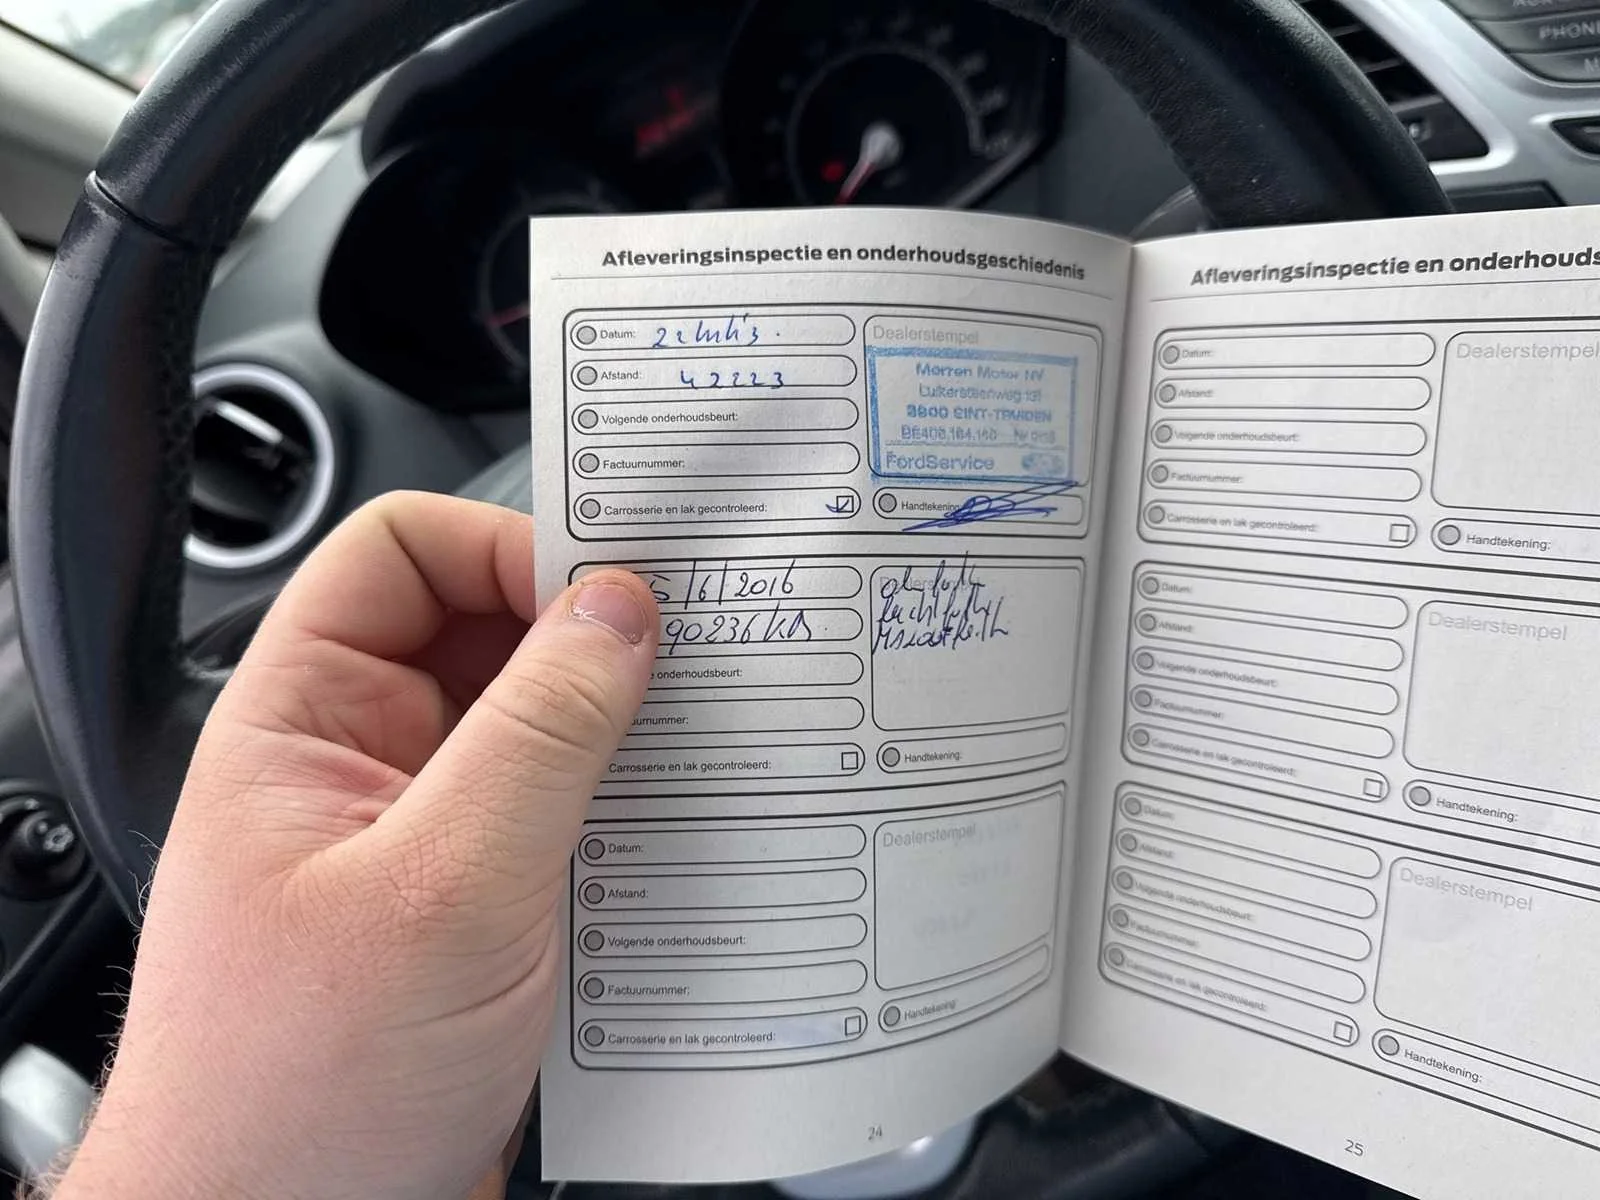 PHONE
Afleveringsinspectie en onderhoudsgeschiedenis
Datum:
Afstand: 42223
Volgende onderhoudsbeurt:
Factuurnummer:
Carrosserie en lak gecontroleerd:
Dealerstempel
Morren Motor NV
Luikersteenweg
3800 SINT-TRUIDEN
FordService
Handtekening:
5/6/2016
90236 km
e onderhoudsbeurt:
uurnummer:
Carrosserie en lak gecontroleerd:
Handtekening:
Datum:
Afstand:
Volgende onderhoudsbeurt:
Factuurnummer:
Carrosserie en lak gecontroleerd:
Dealerstempel
Handtekening:
24
Afleveringsinspectie en onderhouds
Datum:
Afstand:
Volgende onderhoudsbeurt:
Factuurnummer:
Carrosserie en lak gecontroleerd:
Dealerstempel
Handtekening:
Datum:
Afstand:
Volgende onderhoudsbeurt:
Factuurnummer:
Carrosserie en lak gecontroleerd:
Dealerstempel
Handtekening:
Datum:
Afstand:
Volgende onderhoudsbeurt:
Factuurnummer:
Carrosserie en lak gecontroleerd:
Dealerstempel
Handtekening:
25